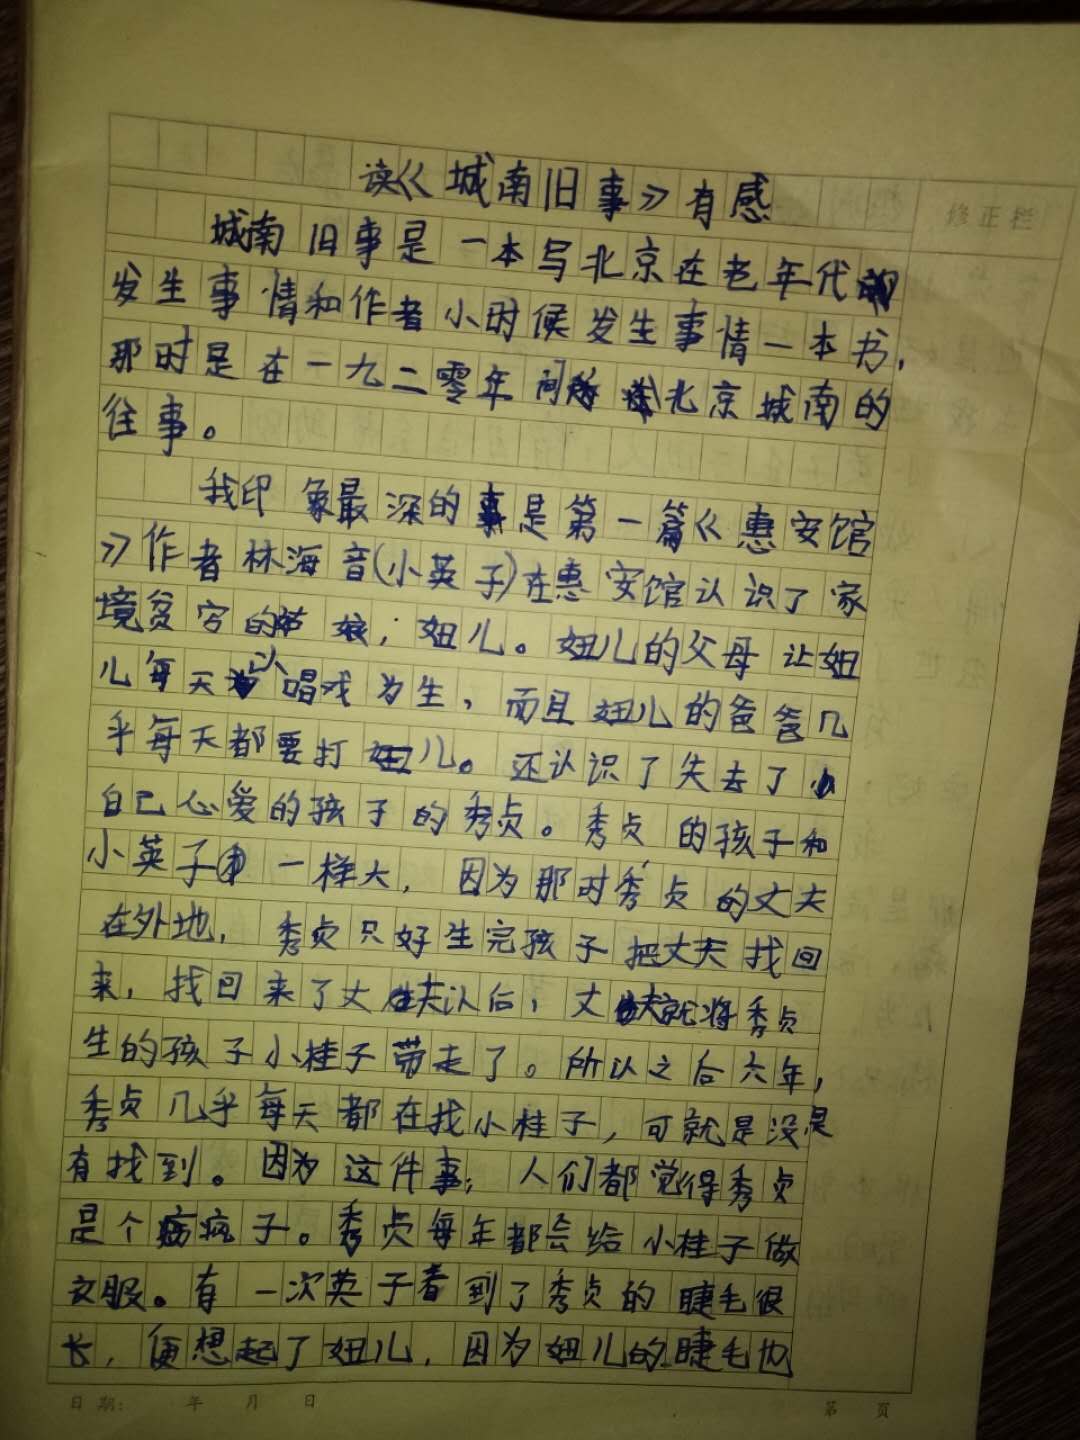 读《城南旧事》有感
修正栏
城南旧事是一本写北京在老年代
发生事情和作者小时候发生事情一本书,
那时是在一九二零年间北京城南的
往事。
我印象最深的事是第一篇《惠安馆
》作者林海音(小英子)在惠安馆认识了家
境贫穷的姑娘;妞儿。妞儿的父母让妞
儿每天以唱戏为生,而且妞儿的爸爸几
乎每天都要打妞儿。还认识了失去了
自己心爱的孩子的秀贞。秀贞的孩子和
小英子一样大,因为那时秀贞的丈夫
在外地,秀贞只好生完孩子把丈夫找回
来,找回来了丈夫以后,丈夫就将秀贞
生的孩子小桂子带走了。所以之后六年,
秀贞几乎每天都在找小桂子,可就是没是
有找到。因为这件事;人们都觉得秀贞
是个疯子。秀贞每年都会给小桂子做
衣服。有一次英子看到了秀贞的睫毛很
长,便想起了妞儿,因为妞儿的睫毛也
日期: 年 月 日 第 页